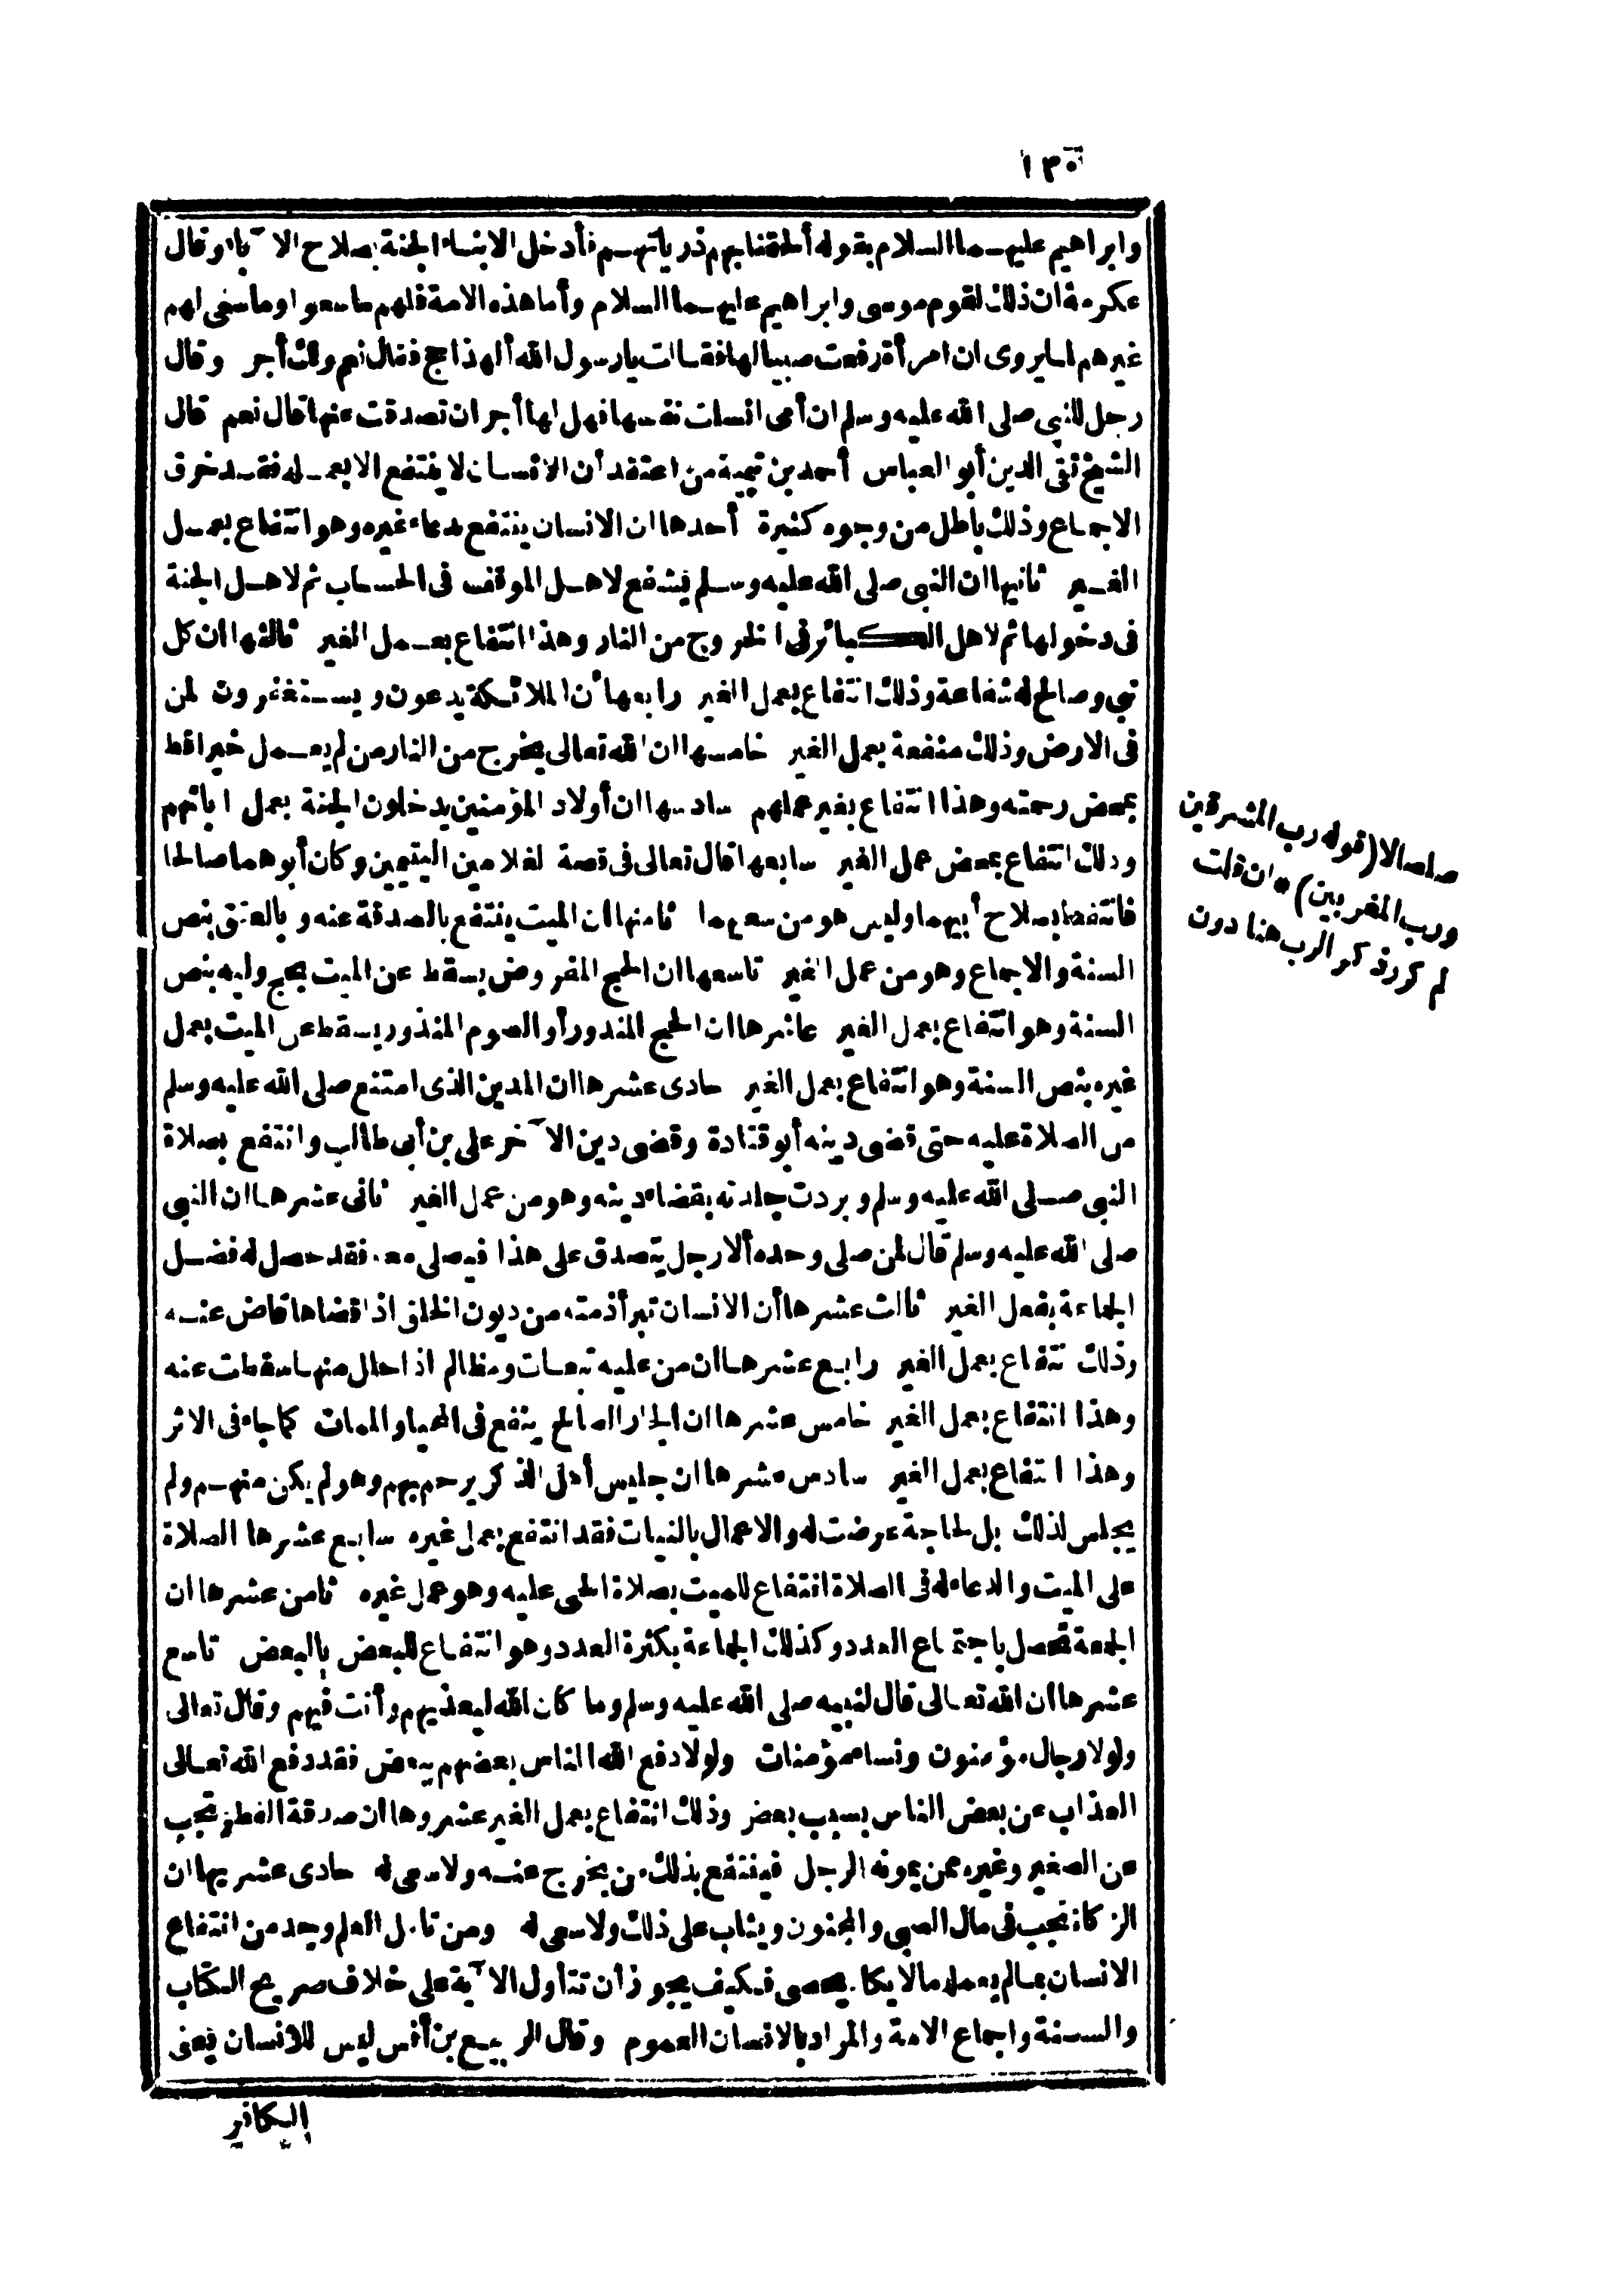 ١٣٥
وابراهيم عليهما السلام بقوله ألحقنا بهم ذرياتهم فأدخل الابناء الجنة بصلاح الآباء وقال
عكرمة ان ذلك لقوم موسى وابراهيم عليهما السلام وأما هذه الامة فلهم ما سعوا وما سعى لهم
غيرهم لما يروى ان امرأة رفعت صبيا لها فقالت يا رسول الله ألهذا حج فقال نعم ولك أجر وقال
رجل للنبي صلى الله عليه وسلم ان أمى افتلتت نفسها فهل لها أجر ان تصدقت عنها قال نعم قال
الشيخ تقى الدين أبو العباس أحمد بن تيمية من اعتقد أن الانسان لا ينتفع الا بعمله فقد خرق
الاجماع وذلك باطل من وجوه كثيرة أحدها ان الانسان ينتفع بدعاء غيره وهو انتفاع بعمل
الغير ثانيها ان النبى صلى الله عليه وسلم يشفع لاهل الموقف فى الحساب ثم لاهل الجنة
فى دخولها ثم لاهل الكبائر فى الخروج من النار وهذا انتفاع بعمل الغير ثالثها ان كل
نبي وصالح له شفاعة وذلك انتفاع بعمل الغير رابعها أن الملائكة يدعون ويستغفرون لمن
فى الارض وذلك منفعة بعمل الغير خامسها ان الله تعالى يخرج من النار من لم يعمل خيرا قط
بمحض رحمته وهذا انتفاع بغير عملهم سادسها ان أولاد المؤمنين يدخلون الجنة بعمل اباتهم
وذلك انتفاع بمحض عمل الغير سابعها قال تعالى فى قصة الغلامين اليتيمين وكان أبوهما صالحا
فانتفعا بصلاح أبيهما وليس هو من سعيهما ثامنها ان الميت ينتفع بالصدقة عنه وبالعتق بنص
السنة والاجماع وهو من عمل الغير تاسعها ان الحج المفروض يسقط عن الميت بحج وليه بنص
السنة وهو انتفاع بعمل الغير عاشرها ان الحج المنذور أو الصوم المنذور يسقط عن الميت بعمل
غيره بنص السنة وهو انتفاع بعمل الغير حادى عشرها ان المدين الذى امتنع صلى الله عليه وسلم
من الصلاة عليه حتى قضى دينه أبو قتادة وقضى دين الآخر على بن أبى طالب وانتفع بصلاة
النبى صلى الله عليه وسلم وبردت جلدته بقضاء دينه وهو من عمل الغير ثانى عشرها ان النبى
صلى الله عليه وسلم قال لمن صلى وحده ألا رجل يتصدق على هذا فيصلى معه فقد حصل له فضل
الجماعة بفعل الغير ثالث عشرها أن الانسان تبرأ ذمته من ديون الخلق اذا قضاها قاض عنه
وذلك انتفاع بعمل الغير رابع عشرها ان من عليه تبعات ومظالم اذا حلل منها سقطت عنه
وهذا انتفاع بعمل الغير خامس عشرها ان الجار الصالح ينفع فى المحيا والممات كما جاء فى الاثر
وهذا انتفاع بعمل الغير سادس عشرها ان جليس أهل الذكر يرحم بهم وهو لم يكن منهم ولم
يجلس لذلك بل لحاجة عرضت له والاعمال بالنيات فقد انتفع بعمل غيره سابع عشرها الصلاة
على الميت والدعاء له فى الصلاة انتفاع للميت بصلاة الحى عليه وهو عمل غيره ثامن عشرها ان
الجمعة تحصل باجتماع العدد وكذلك الجماعة بكثرة العدد وهو انتفاع للبعض بالبعض تاسع
عشرها ان الله تعالى قال لنبيه صلى الله عليه وسلم وما كان الله ليعذبهم وأنت فيهم وقال تعالى
ولولا رجال مؤمنون ونساء مؤمنات ولولا دفع الله الناس بعضهم ببعض فقد دفع الله تعالى
العذاب عن بعض الناس بسبب بعض وذلك انتفاع بعمل الغير عشروها ان صدقة الفطر تجب
عن الصغير وغيره ممن يمونه الرجل فينتفع بذلك من يخرج عنه ولا سعى له حادى عشريها ان
الزكاة تجب فى مال الصبى والمجنون ويثاب على ذلك ولا سعى له ومن تأمل العلم وجد من انتفاع
الانسان بما لم يعمله ما لا يكاد يحصى فكيف يجوز أن تتأول الآية على خلاف صريح الكتاب
والسنة واجماع الامة والمراد بالانسان العموم وقال الربيع بن أنس ليس للانسان يعنى
الكافر
صلصالا (قوله رب المشرقين
ورب المغربين) * ان قلت
لم كرر ذكر الرب هنا دون